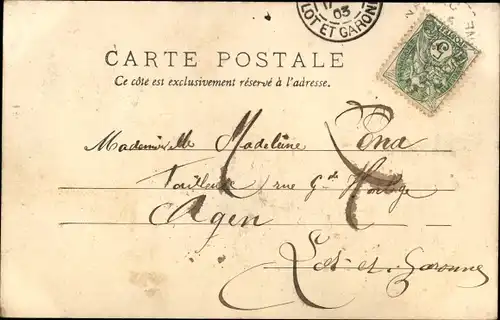 03
LOT ET GARON
CARTE POSTALE
Ce côté est exclusivement réservé à l'adresse.
Mademoiselle Madeleine Pena
Tailleuse rue Gde Horloge
Agen
Lot-et-Garonne